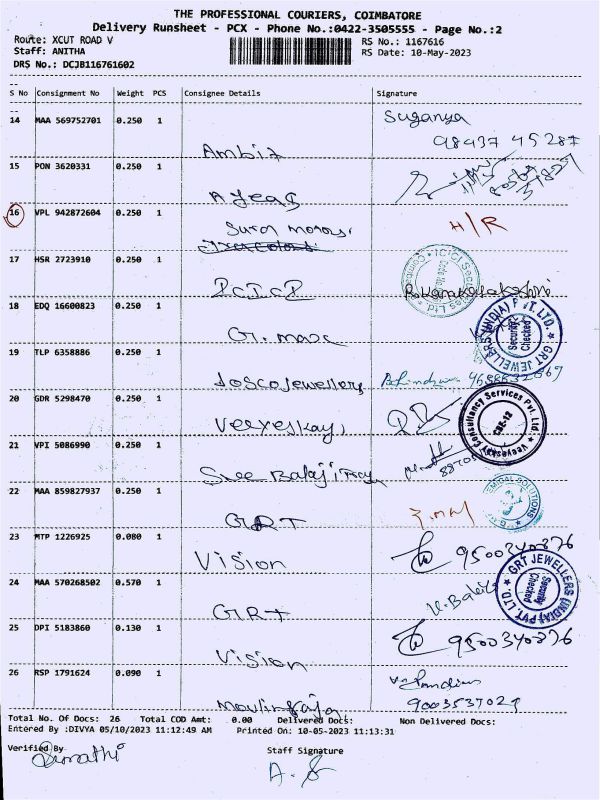 THE PROFESSIONAL COURIERS, COIMBATORE
Delivery Runsheet - PCX - Phone No.:0422-3505555 - Page No.:2
Route: XCUT ROAD V
RS No.: 1167616
Staff: ANITHA
RS Date: 10-May-2023
DRS No.: DCJB116761602
S No Consignment No Weight PCS Consignee Details Signature
14 MAA 569752701 0.250 1 Suganya
98437 45287
Ambit
15 PON 3620331 0.250 1
16 VPL 942872604 0.250 1 H/R
17 HSR 2723910 0.250 1
ICICI
18 EDQ 16600823 0.250 1
GRT JEWELLERS (INDIA) PVT. LTD.
Security Checked
19 TLP 6358886 0.250 1
Joscojewellers
20 GDR 5298470 0.250 1
Veeyeskay Consultancy Services Pvt. Ltd.
CBE-12
Veeyeskay
21 VPI 5086990 0.250 1
Sree Balaji
22 MAA 859827937 0.250 1
GRT
23 MTP 1226925 0.080 1 9500340376
Vision
24 MAA 570268502 0.570 1
GRT JEWELLERS (INDIA) PVT. LTD.
Security Checked
GRT
25 DPI 5183860 0.130 1 9500340376
Vision
26 RSP 1791624 0.090 1
9003537029
Total No. Of Docs: 26 Total COD Amt: 0.00 Delivered Docs: Non Delivered Docs:
Entered By :DIVYA 05/10/2023 11:12:49 AM Printed On: 10-05-2023 11:13:31
Verified By Staff Signature
Sumathi
A.S